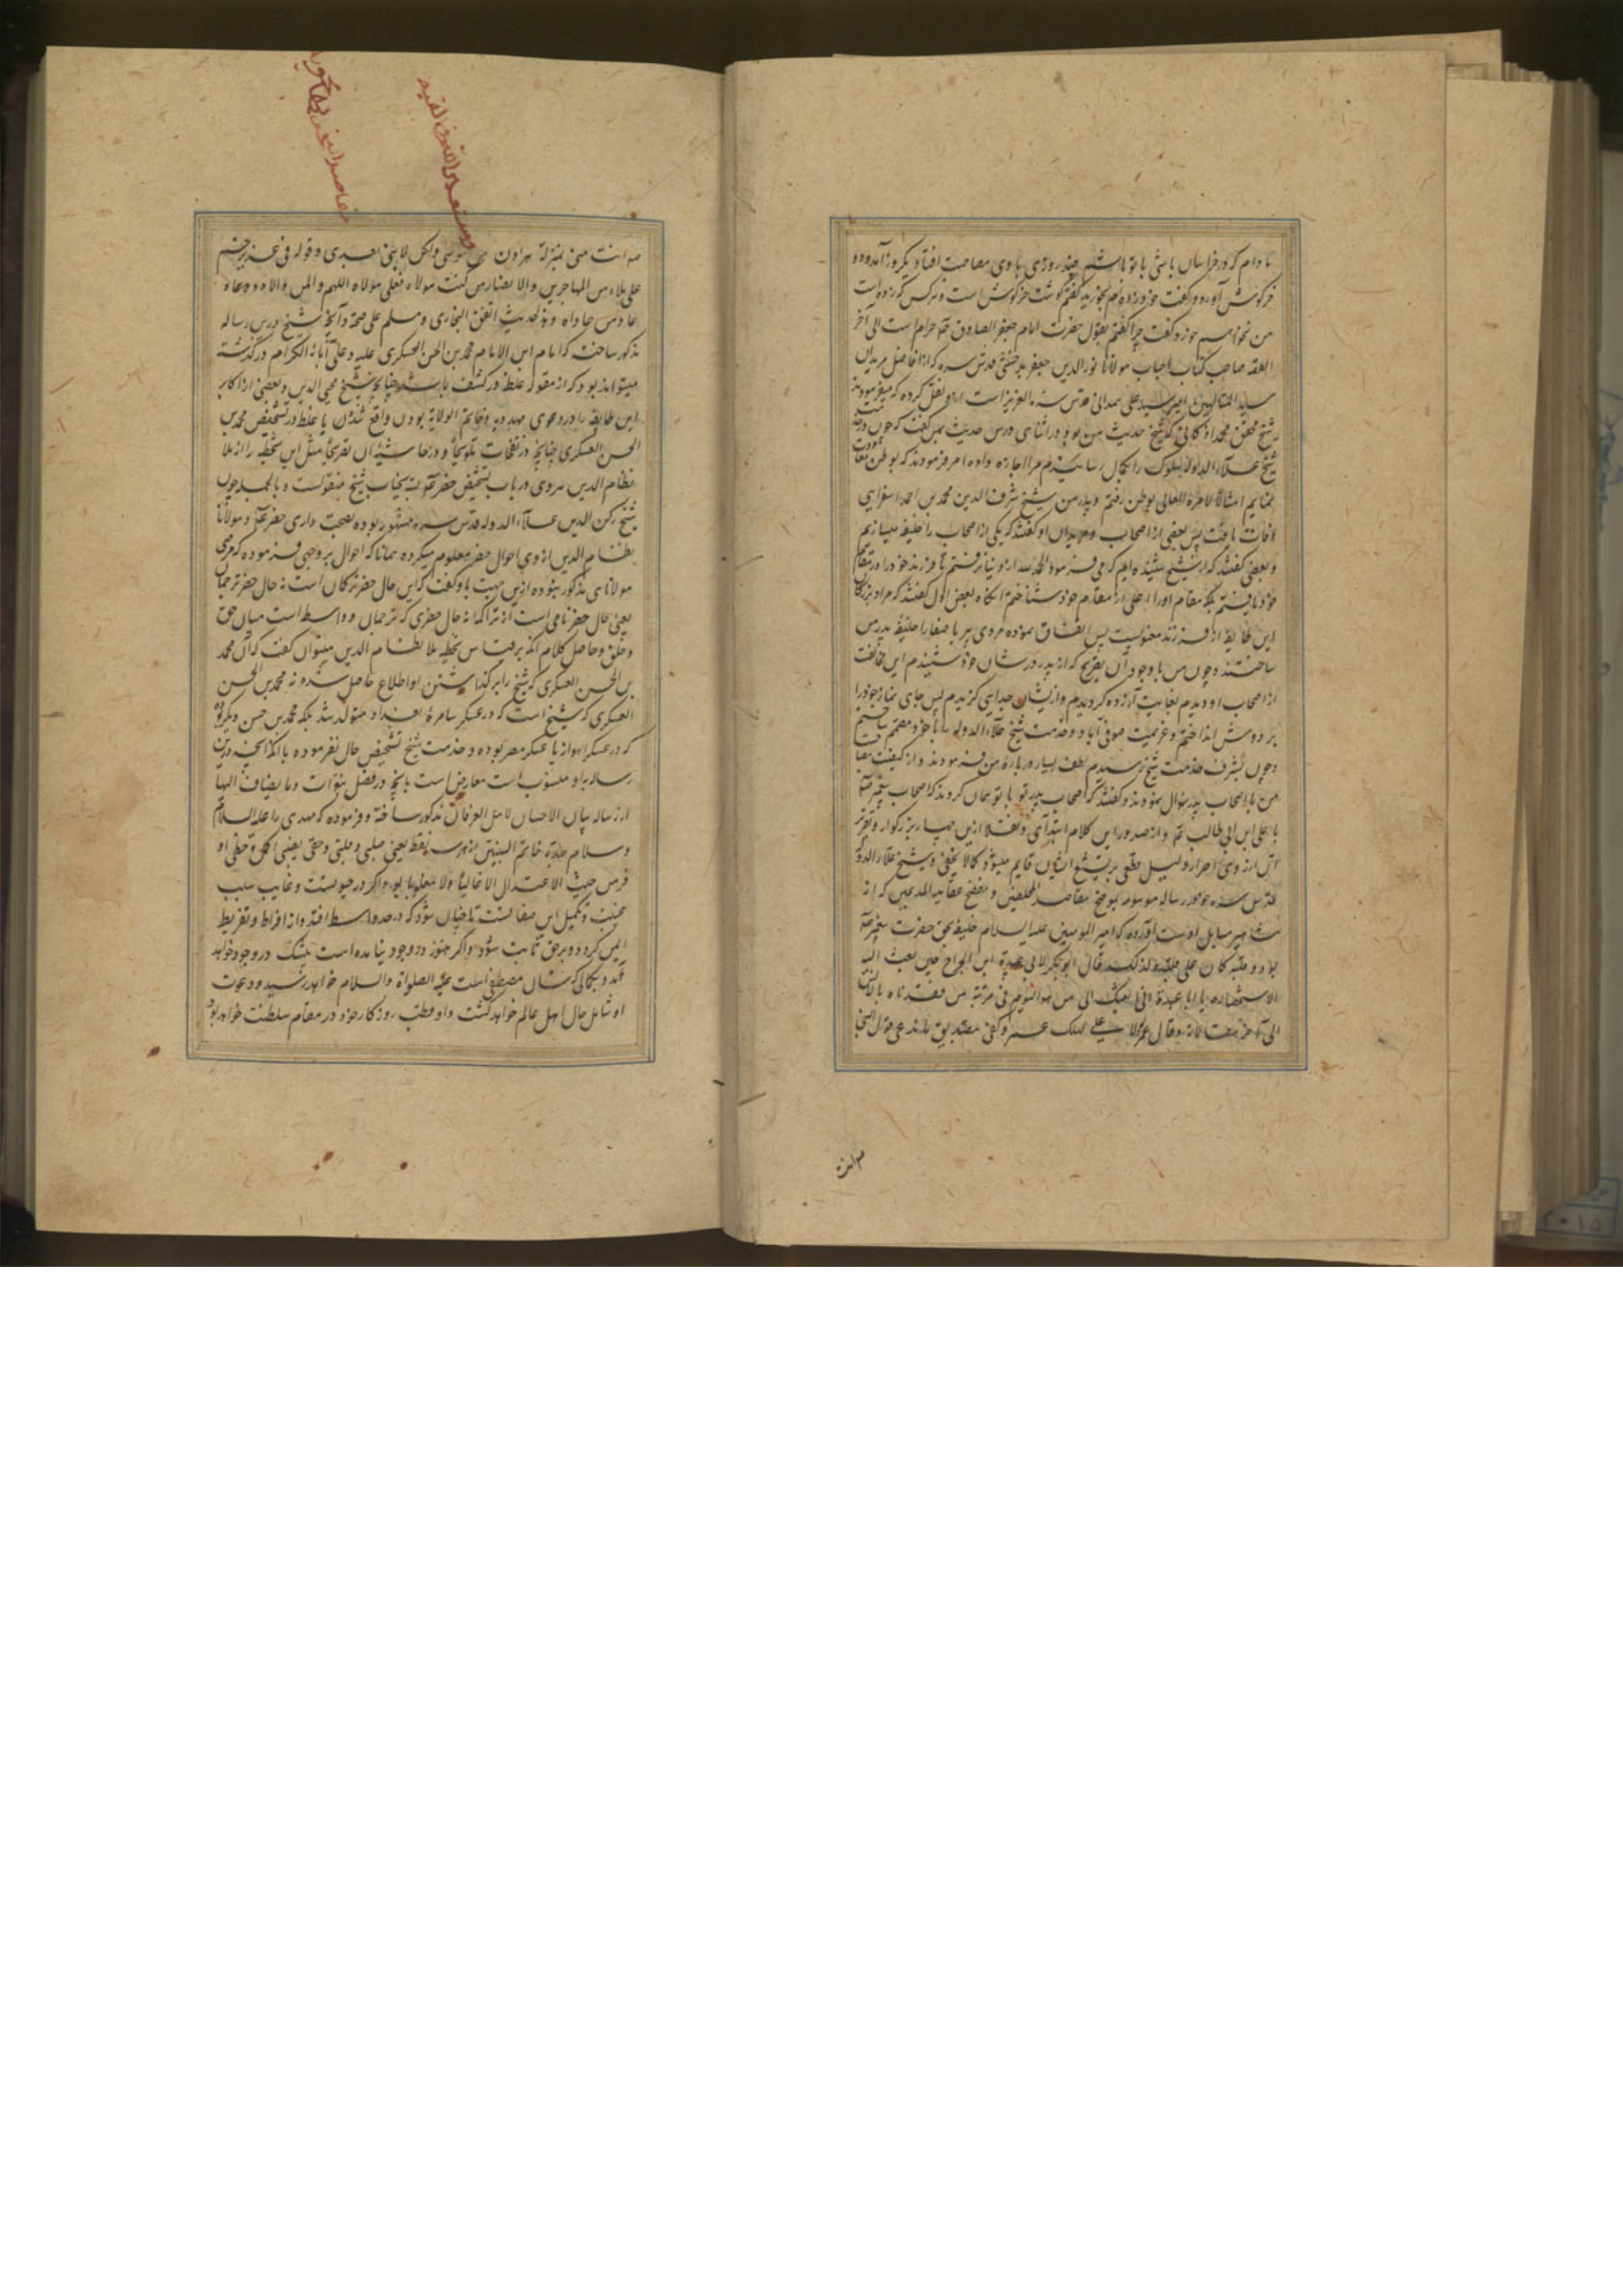 تا دام که در خراسان باشی با تو باشم چند روزی با وی مصاحبت افتاد یکروز آمد و دو
خرگوش آورد و گفت خود زده‌ام بخورید گفتم گوشت خرگوش است و هر کس که زده است
من نخواهم خورد گفت چرا گفتم بقول حضرت امام جعفر الصادق حرام است الی آخر
القصه صاحب کتاب احباب مولانا نورالدین جعفر بدخشی قدس سره که از افاضل مریدان
سید المتالهین امیر سید علی همدانی قدس سره العزیز است ازو نقل کرده که میفرمودند
شیخ محقق محمد اذکانی که شیخ حدیث من بود در اثنای درس حدیث بمن گفت که چون در خدمت
شیخ علاء الدوله سلوک را بکمال رسانیدم مرا اجازه داده امر فرمودند که بوطن معاودت
نمایم امتثالا لامره العالی بوطن رفتم و پدر من شیخ شرف الدین محمد بن احمد اسفراینی
وفات یافت پس بعضی از اصحاب و مریدان او گفتند که یکی از اصحاب را خلیفه میسازیم
و بعضی گفتند که از شیخ شنیده‌ایم که می فرمود الحمد لله از دنیا نرفتم تا فرزند خود را در مقام
خود یافتم بلکه مقام او را اعلی از مقام خود شناختم آنگاه بعض اول گفتند که مراد بزرگان
این طایفه از فرزند معنویست پس اتفاق نموده مردی پیر با صفا را خلیفه پدر من
ساختند و چون من با وجود آن تصریح که از پدر در شان خود شنیدم این مخالفت
از اصحاب او دیدم بغایت آزرده گردیدم و ازیشان جدایی گزیدم پس جای نماز خود را
بر دوش انداختم و عزیمت صوفی آباد و خدمت شیخ علاء الدوله با خود مصمم ساختم
و چون بشرف خدمت شیخ رسیدم لطف بسیار در باره من فرمودند و از کیفیت
من با اصحاب پدر سؤال نمودند و گفتند که اصحاب پدر تو با تو همان کردند که اصحاب پیغمبر
با علی ابن ابی طالب و از صدور این کلام ابتداء و نقلا ازین چهار بزرگوار و تقریر
آن ازروی اصرار دلیل قطعی بر تشیع ایشان قایم میشود کما لا یخفی و شیخ علاء الدوله
قدس سره خود در رساله موسومه بموضح مقاصد المخلصین و مفضح عقاید المدعین که از
مشاهیر رسایل اوست آورده که امیر المومنین علیه السلام خلیفه بحق حضرت پیغمبر
بود و قلبه کان علی قلبه و لذلک قال ابوبکر لابی عبیدة ابن الجراح حین بعث الیه
لاستحضاره یا ابا عبیدة انی ابعثک الی من هو الیوم فی مرتبة من فقدناه بالامس
الی آخر مقالته و قال عمر لولا علی لهلک عمر و کفی مصداق
مه انت
مقاصد
مه انت منی بمنزلة هرون من موسی ولکن لا نبی بعدی و قوله فی غدیر خم
علی ملاء من المهاجرین والانصار من کنت مولاه فعلی مولاه اللهم وال من والاه و عاد
عاد من عاداه و هذا حدیث اتفق البخاری و مسلم علی صحته و آنچه شیخ درین رساله
مذکور ساخت که امام ابن الامام محمد بن الحسن العسکری علیه و علی آبائه الکرام درگذشته
میتواند بود که از مقوله غلط در کشف باشد چنانچه شیخ محیی الدین و بعضی از اکابر
این طایفه را در دعوی مهدویه و خاتم الولایه بودن واقع شده یا غلط در تشخیص محمد بن
الحسن العسکری چنانچه در نفحات تلویحا و در حاشیه آن تصریحا مثل این تخطیه را از ملا
نظام الدین هروی در باب تشخیص خضر نسبة بجناب شیخ منقولست و بالجمله چون
شیخ رکن الدین علاء الدوله قدس سره مشهور بوده بصحبت داری خضر و مولانا
نظام الدین ازوی احوال خضر معلوم میکرده همانا که احوال بر وجهی فرموده که مرضی
مولانای مذکور نبوده ازین جهت باو گفت که این حال خضر ترکان است نه حال خضر ترجمان
یعنی حال خضر نامی است از تراکمه نه حال خضری که ترجمان و واسطه است میان حق
و خلق و حاصل کلام آنکه بر قیاس تخطیه ملا نظام الدین میتوان گفت که آن محمد
بن الحسن العسکری که شیخ را بر گذاشتن او اطلاع حاصل شده نه محمد بن الحسن
العسکری که شیخ است که در عسکر سامره بغداد متولد شد بلکه محمد بن حسن دیگر بوده
که در عسکر اهواز یا عسکر مصر بوده و خدمت شیخ تشخیص حال نفرموده با آنکه آنچه درین
رساله باو منسوب است معارض است بآنچه در فصل نبوات و ما یضاف الیها
از رساله بیان الاحسان لاهل العرفان مذکور ساخته و فرموده که مهدی را علیه السلام
و سلام جده خاتم النبیین ازهر سه نقطه یعنی صلبی و قلبی و حقی نصیبی اکمل و حظی او
فر من حیث الاعتدال لا غالبا و لا مغلوبا بود و اگر در حیوتست و غایب سبب
غیبت و تکمیل این صفا تست تا چنان شود که در حد واسط افتد و از افراط و تفریط
ایمن گردد و بر حق ثابت شود و اگر هنوز در وجود نیامده است بیشک در وجود خواهد
آمد و بکمالی که شان مصطفی است علیه الصلواة والسلام خواهد رسید و دعوت
او شامل حال اهل عالم خواهد گشت و او قطب روزگار خود در مقام سلطنت خواهد بود